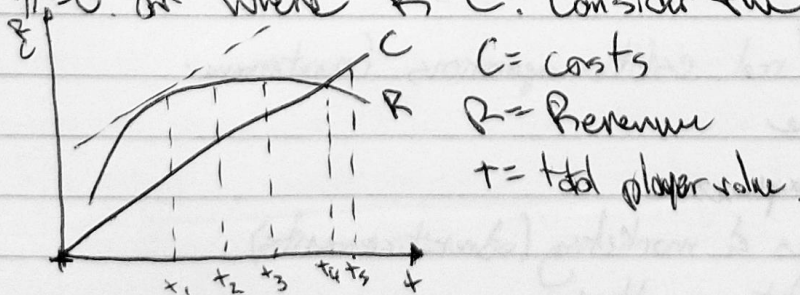 C. Consider the
£
C
C = costs
R
R = Revenue
t = total player value.
t₁ t₂ t₃ t₄ t₅ t